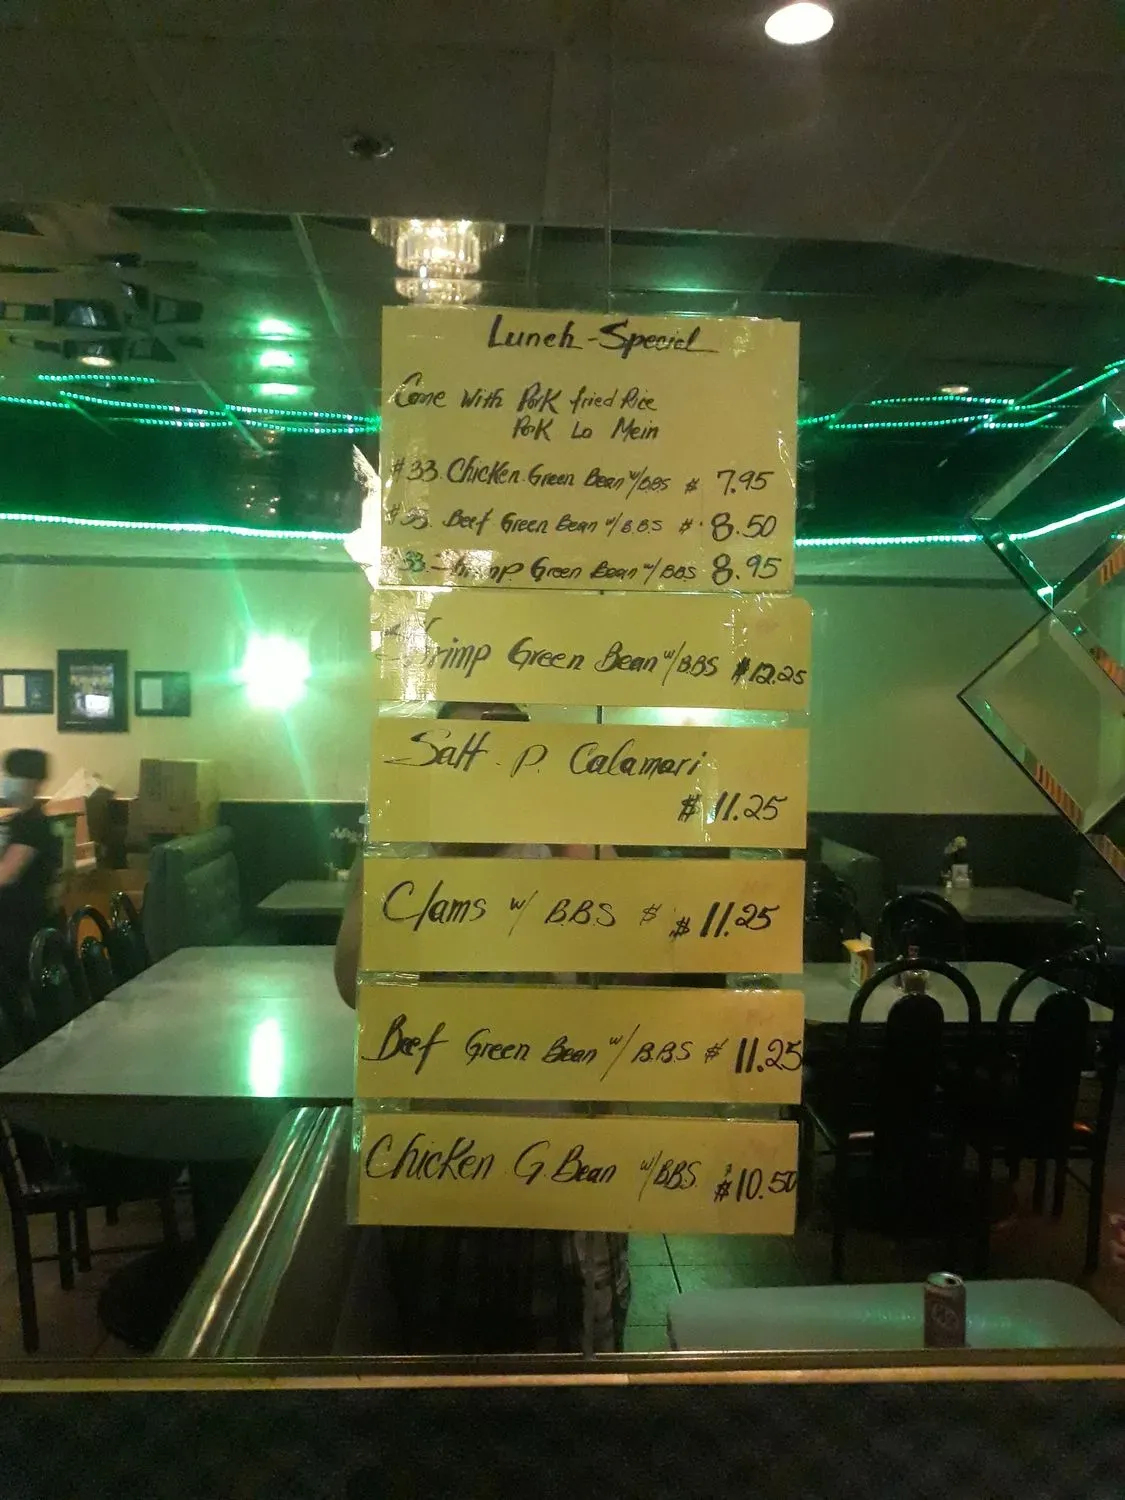 Lunch-Special
Come with Pork fried Rice
Pork Lo Mein
#33. Chicken Green Bean w/BBS $ 7.95
#33. Beef Green Bean w/B.B.S $ 8.50
33. Shrimp Green Bean w/BBS 8.95
Shrimp Green Bean w/B.BS $12.25
Salt . P. Calamari
$ 11.25
Clams w/ B.B.S $ $ 11.25
Beef Green Bean w/ B.B.S $ 11.25
Chicken G. Bean w/BBS. $10.50